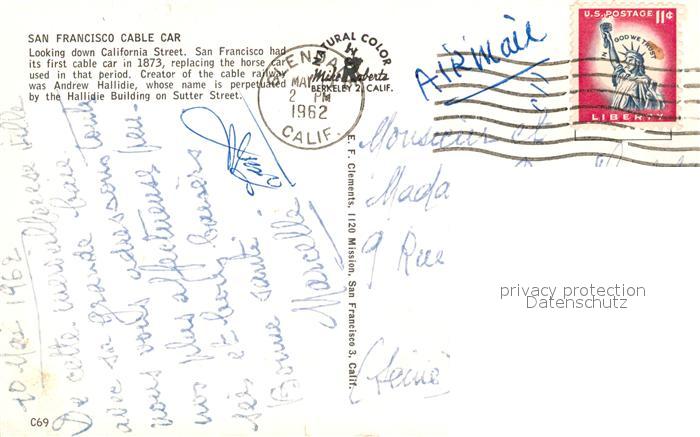 SAN FRANCISCO CABLE CAR
Looking down California Street. San Francisco had
its first cable car in 1873, replacing the horse car
used in that period. Creator of the cable railway
was Andrew Hallidie, whose name is perpetuated
by the Hallidie Building on Sutter Street.
NATURAL COLOR
Mike Roberts
BERKELEY 2, CALIF.
MAY
2 PM
1962
CALIF.
AIRMAIL
U.S. POSTAGE 11¢
IN GOD WE TRUST
LIBERTY
10 Mai 1962
De cette merveilleuse ville
avec sa grande baie
nous vous adressons toutes
nos plus affectueuses pensées
et bons baisers
Bonne santé.
Marcelle
E. F. Clements, 1120 Mission, San Francisco 3, Calif.
Monsieur et
Mada
9 Rue
(Seine)
privacy protection
Datenschutz
C69